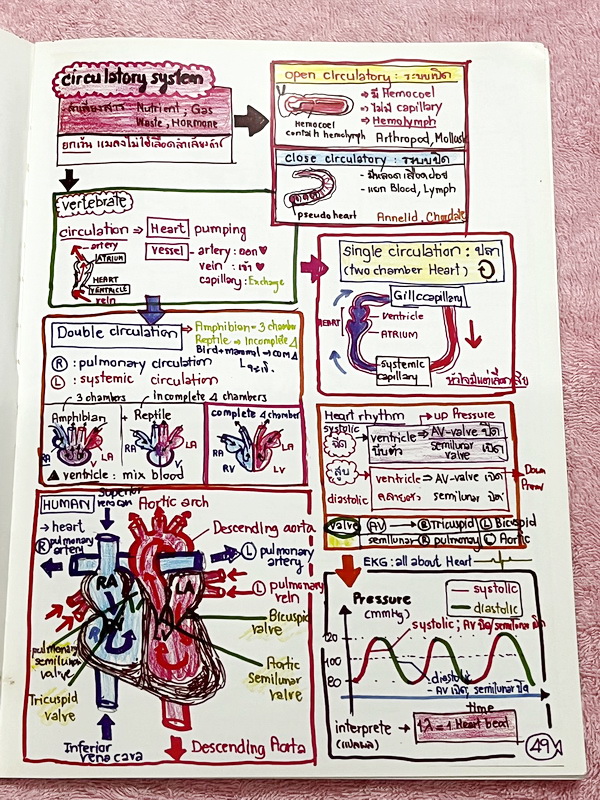 circulatory system
Nutrient, Gas
Waste, HORMONE
open circulatory : ระบบเปิด
→ มี Hemocoel
→ ไม่มี capillary
→ Hemolymph
Hemocoel
contain hemolymph
Arthropod, Mollusk
close circulatory : ระบบปิด
- มีหลอดเลือดฝอย
- แยก Blood, Lymph
pseudoheart
Annelid, Chordate
vertebrate
circulation → Heart pumping
vessel - artery : ออก ♥
vein : เข้า ♥
capillary : Exchange
artery
ATRIUM
HEART
VENTRICLE
vein
single circulation : ปลา
(two chamber Heart)
Gill capillary
HEART
ventricle
ATRIUM
systemic
capillary
Double circulation
Amphibian → 3 chamber
Reptile → Incomplete 4
Bird + mammal → com 4
Ⓡ : pulmonary circulation
Ⓛ : systemic circulation
3 chambers
Incomplete 4 chambers
Amphibian
Reptile
complete 4 chamber
RA
LA
V
RA
LA
V
RA
LA
RV
LV
▲ ventricle : mix blood
Heart rhythm → up Pressure
systolic
ventricle ⇒ AV-valve ปิด
บีบตัว
semilunar valve เปิด
สูบ
diastolic
ventricle → AV-valve เปิด
คลายตัว
semilunar ปิด
Down
valve
AV → Ⓡ Tricuspid Ⓛ Bicuspid
semilunar → Ⓡ pulmonary Ⓛ Aortic
HUMAN
→ heart
Superior
vena cava
Aortic arch
Descending aorta
Ⓡ pulmonary
artery
Ⓛ pulmonary
artery
Ⓛ pulmonary
vein
RA
LA
LV
Bicuspid
valve
pulmonary
semilunar
valve
Aortic
Semilunar
valve
Tricuspid
valve
Inferior
vena cava
Descending Aorta
EKG : all about Heart
Pressure
(mmHg)
systolic
diastolic
systolic ; AV ปิด / semilunar เปิด
120
100
80
diastolic
- AV เปิด, semilunar ปิด
time
interprete → 1λ = 1 Heart beat
(แปลผล)
49